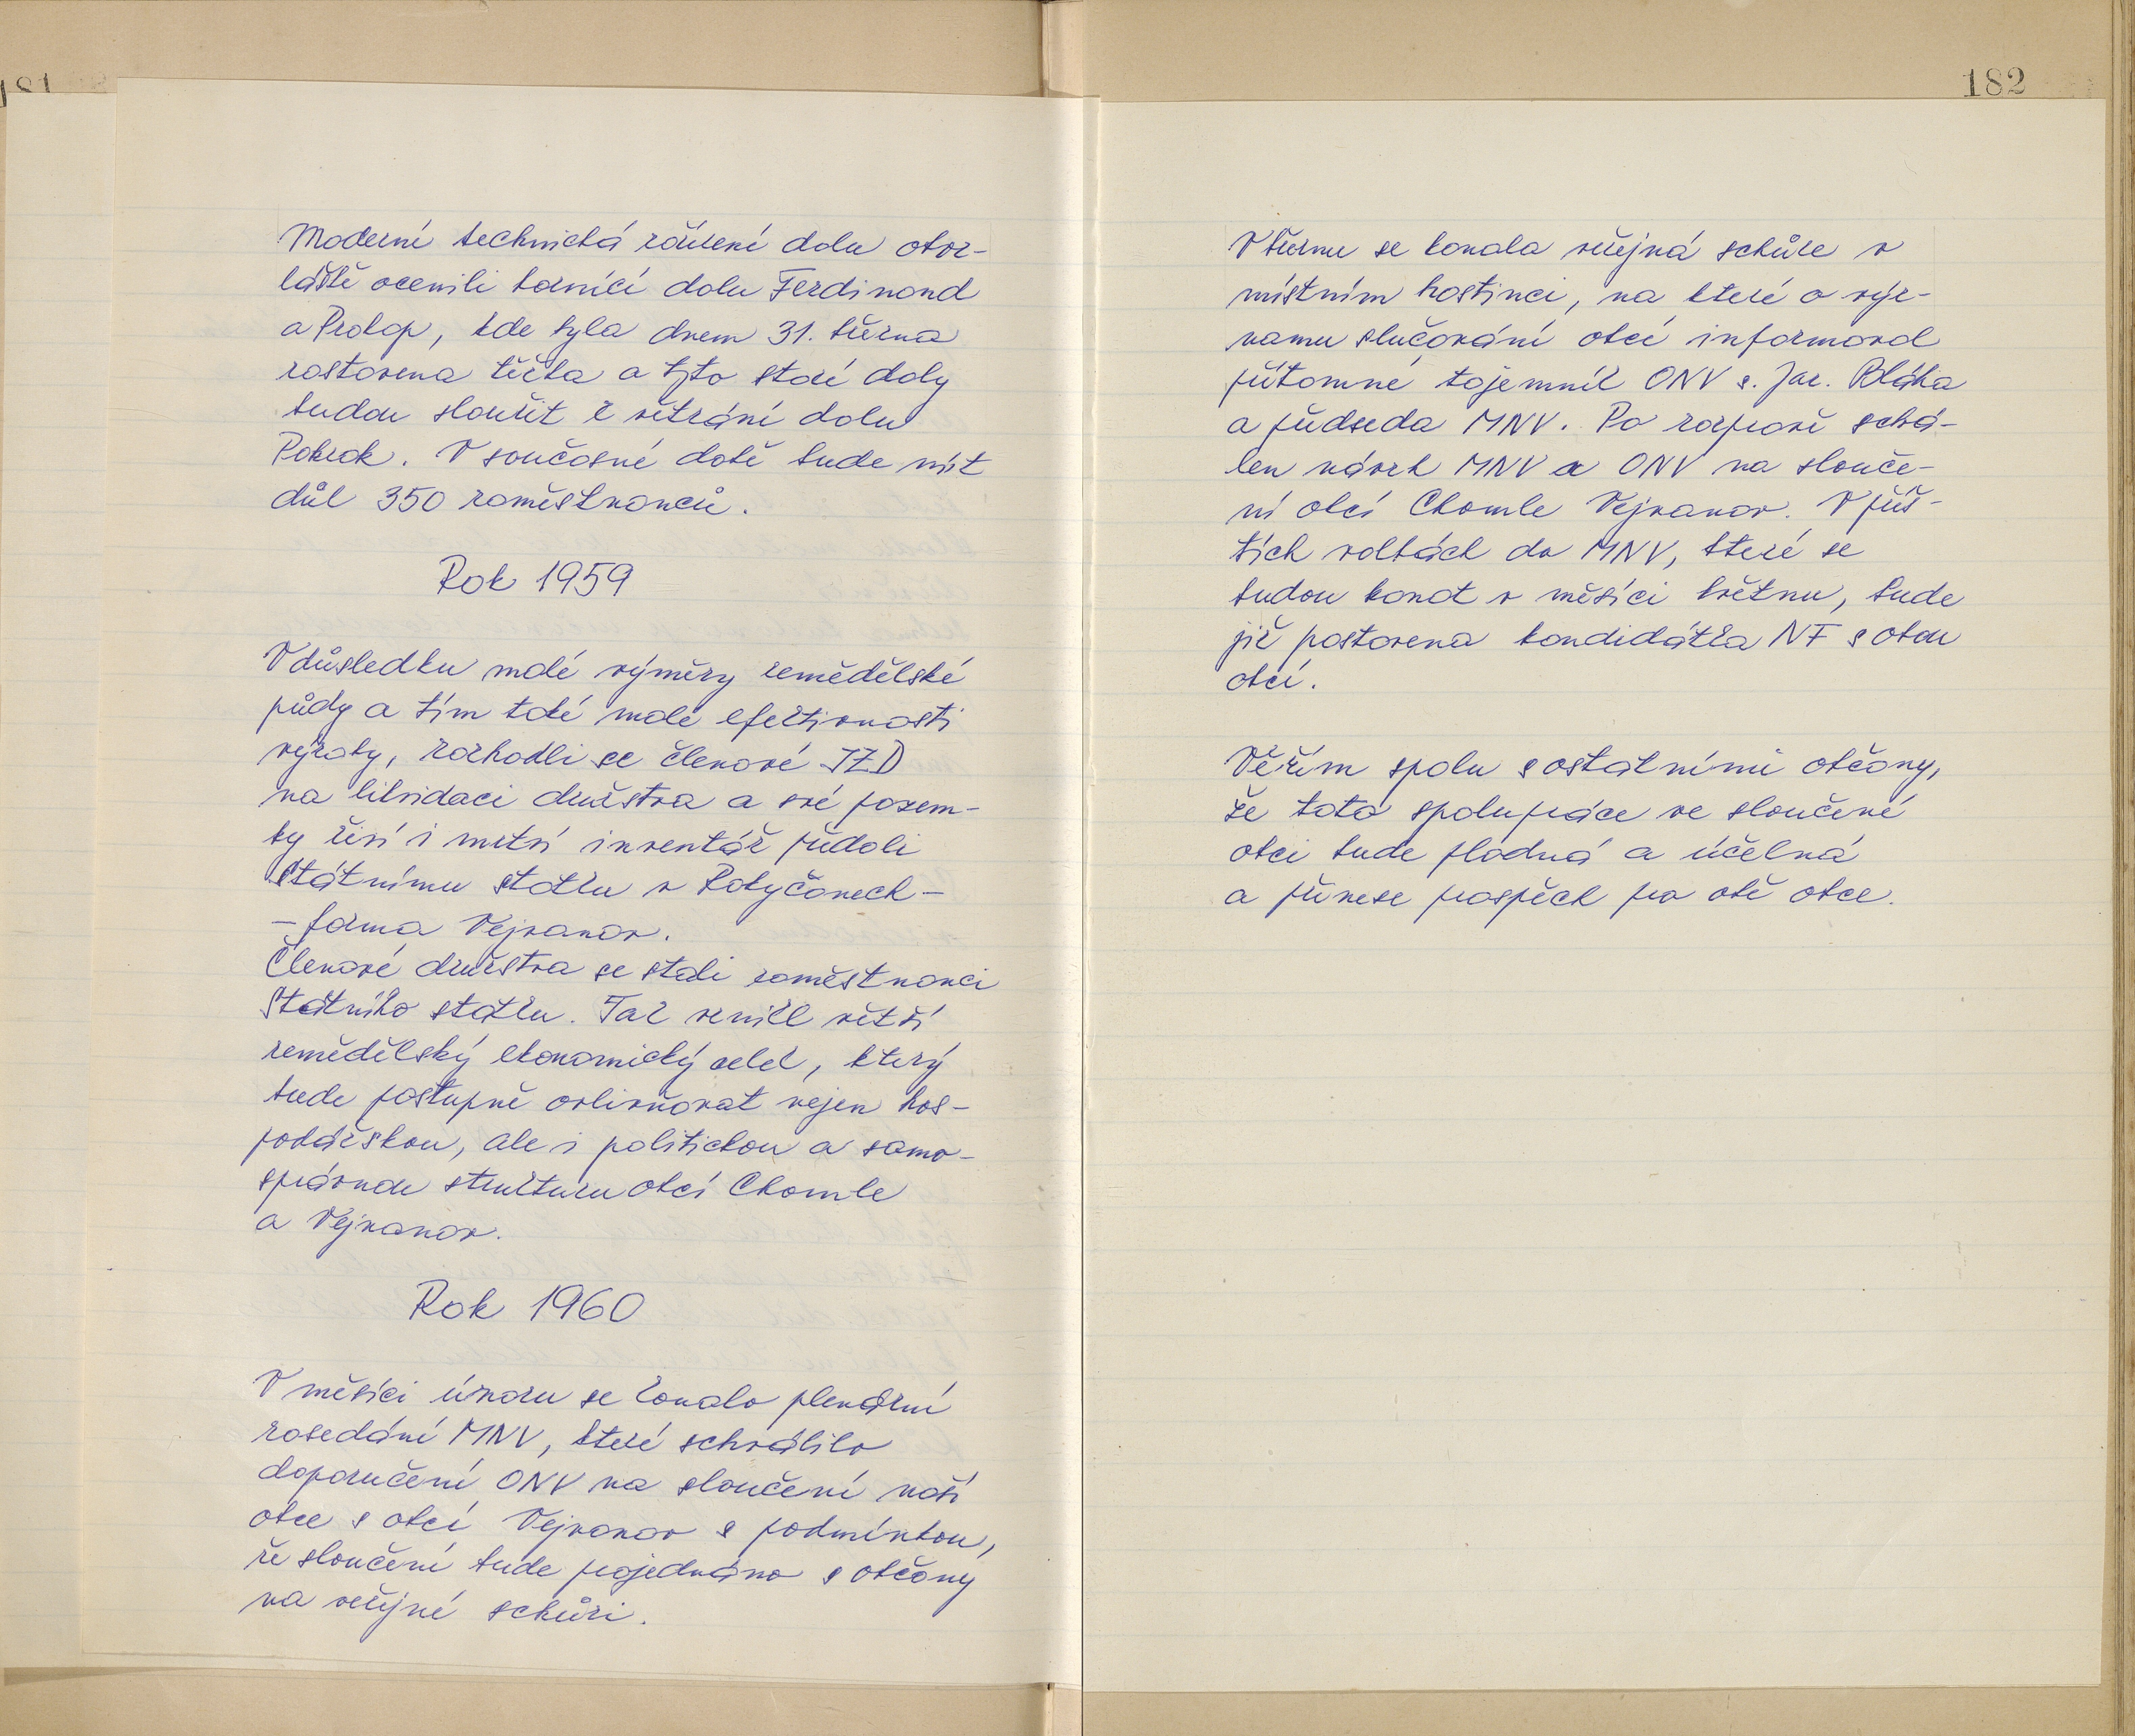 181
Moderní technická zařízení dolu obzv-
láště ocenili horníci dolu Ferdinand
a Prokop, kde byla dnem 31. března
zastavena těžba a tyto staré doly
budou sloužit k větrání dolu
Pokrok. V současné době bude mít
důl 350 zaměstnanců.
Rok 1959
V důsledku malé výměry zemědělské
půdy a tím také malé efektivnosti
výroby, rozhodli se členové JZD
na likvidaci družstva a své pozem-
ky živí i mrtví inventář předali
Státnímu statku v Rokyčanech -
- farma Vejvanov.
Členové družstva se stali zaměstnanci
Státního statku. Tak vznikl větší
zemědělský ekonomický celek, který
bude postupně ovlivňovat nejen hos-
podářskou, ale i politickou a samo-
správnou strukturu obcí Chomle
a Vejvanov.
Rok 1960
V měsíci únoru se konalo plenární
zasedání MNV, které schválilo
doporučení ONV na sloučení naší
obce s obcí Vejvanov s podmínkou,
že sloučení bude projednáno s občany
na veřejné schůzi.
182
V březnu se konala veřejná schůze v
místním hostinci, na které o výz-
namu slučování obcí informoval
přítomné tajemník ONV s. Jar. Bláha
a předseda MNV. Po rozpravě schvá-
len návrh MNV a ONV na slouče-
ní obcí Chomle Vejvanov. V příš-
tích volbách do MNV, které se
budou konat v měsíci květnu, bude
již postavena kandidátka NF s obou
obcí.
Věřím spolu s ostatními občany,
že tato spolupráce ve sloučené
obci bude plodná a účelná
a přinese prospěch pro obě obce.